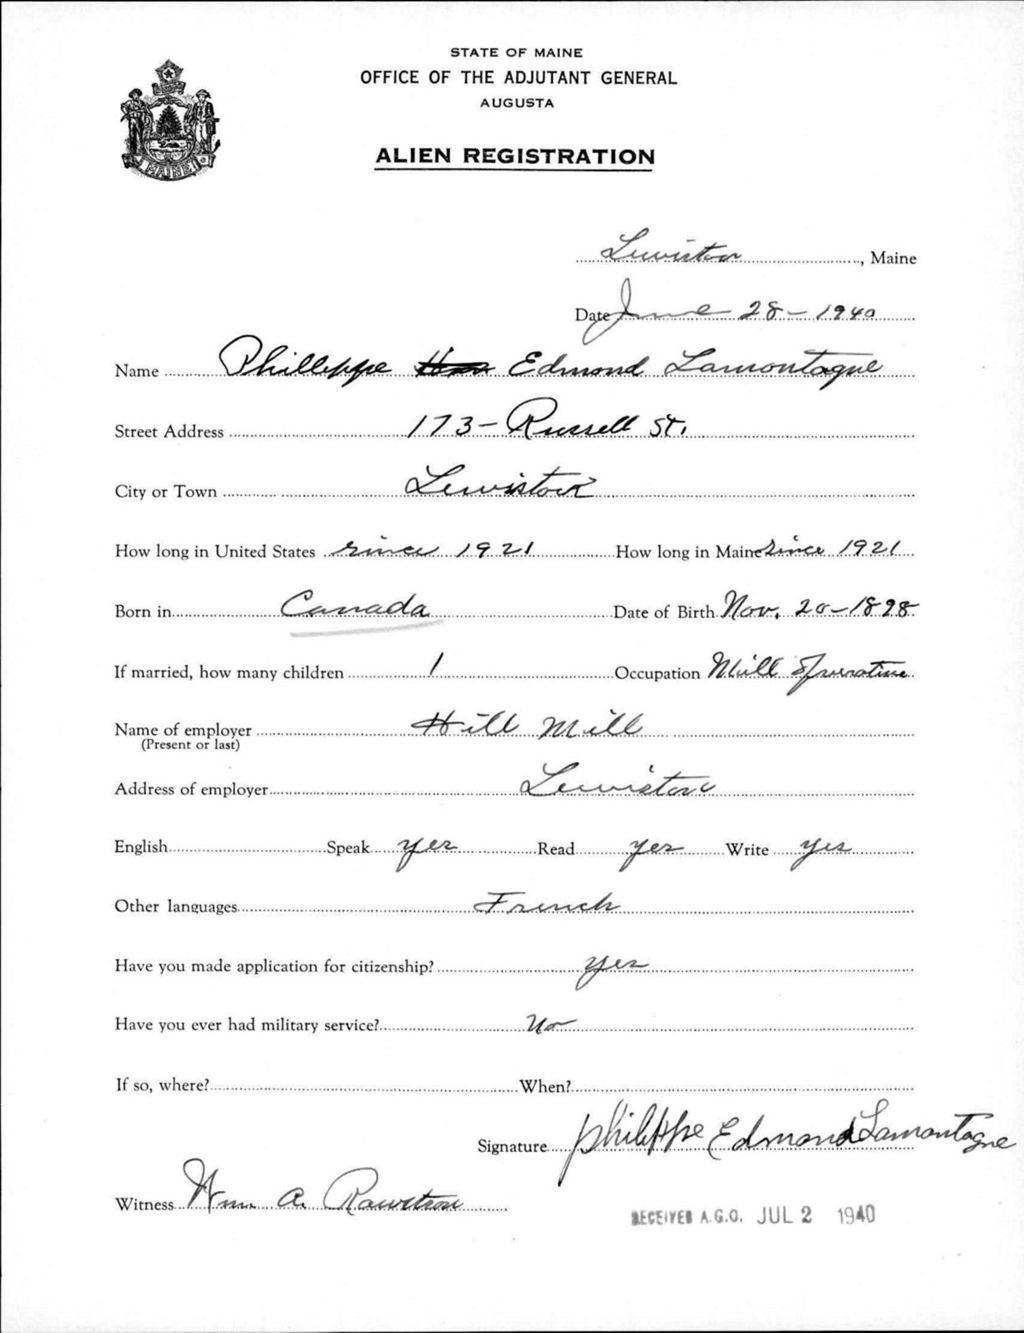 STATE OF MAINE
OFFICE OF THE ADJUTANT GENERAL
AUGUSTA
ALIEN REGISTRATION
Lewiston, Maine
Date June 28 - 1940
Name Philleppe Edmond Lamontagne
Street Address 173 - Russell St.
City or Town Lewiston
How long in United States since 1921 How long in Maine since 1921
Born in Canada Date of Birth Nov. 20 - 1898
If married, how many children 1 Occupation Mill Operative
Name of employer Hill Mill
(Present or last)
Address of employer Lewiston
English Speak yes Read yes Write yes
Other languages French
Have you made application for citizenship? yes
Have you ever had military service? No
If so, where? When?
Signature Philippe Edmond Lamontagne
Witness Wm. A. Rawstron
RECEIVED A.G.O. JUL 2 1940